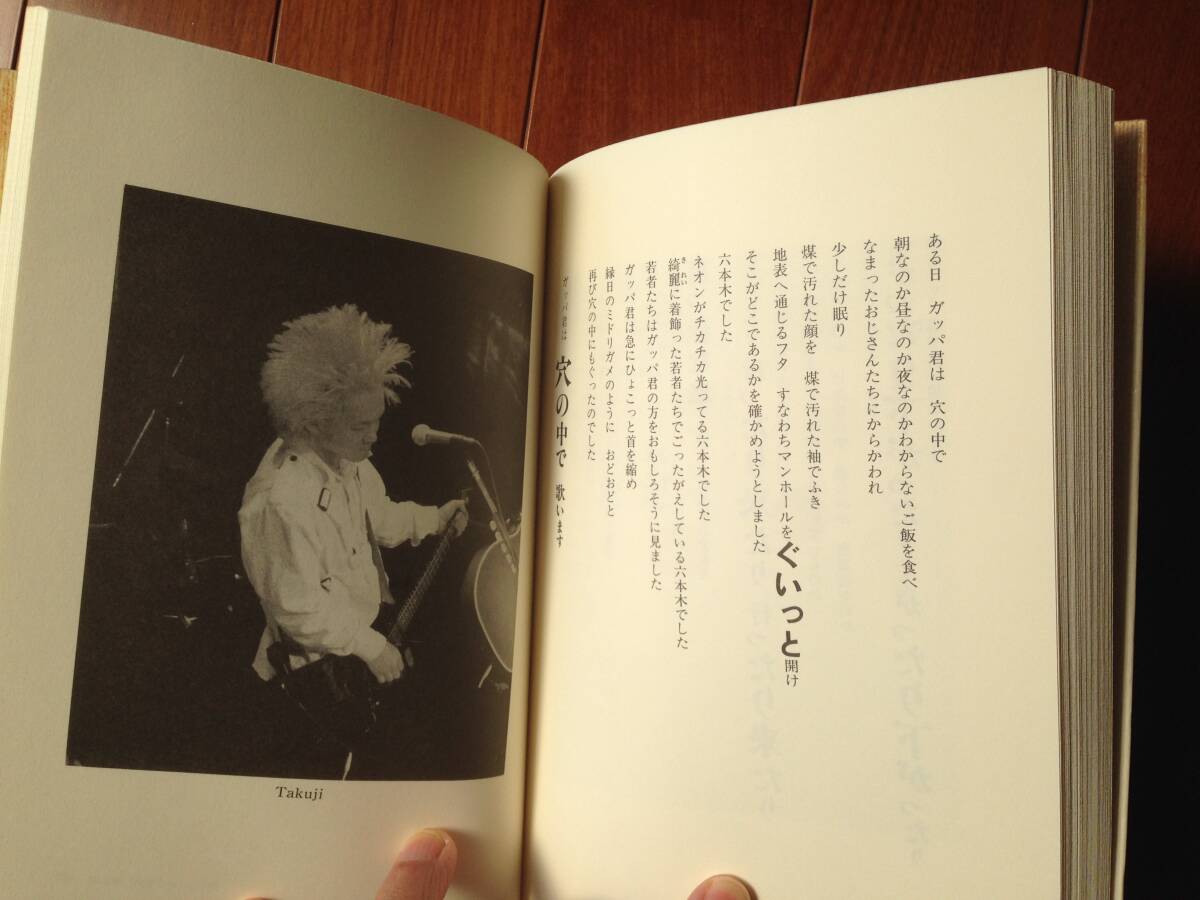 ある日　ガッパ君は　穴の中で
朝なのか昼なのか夜なのかわからないご飯を食べ
なまったおじさんたちにからかわれ
少しだけ眠り
煤で汚れた顔を　煤で汚れた袖でふき
地表へ通じるフタ　すなわちマンホールをぐいっと開け
そこがどこであるかを確かめようとしました
六本木でした
ネオンがチカチカ光ってる六本木でした
綺麗に着飾った若者たちでごったがえしている六本木でした
きれい
若者たちはガッパ君の方をおもしろそうに見ました
ガッパ君は急にひょこっと首を縮め
縁日のミドリガメのように　おどおどと
再び穴の中にもぐったのでした
ガッパ君は　穴の中で　歌います
Takuji